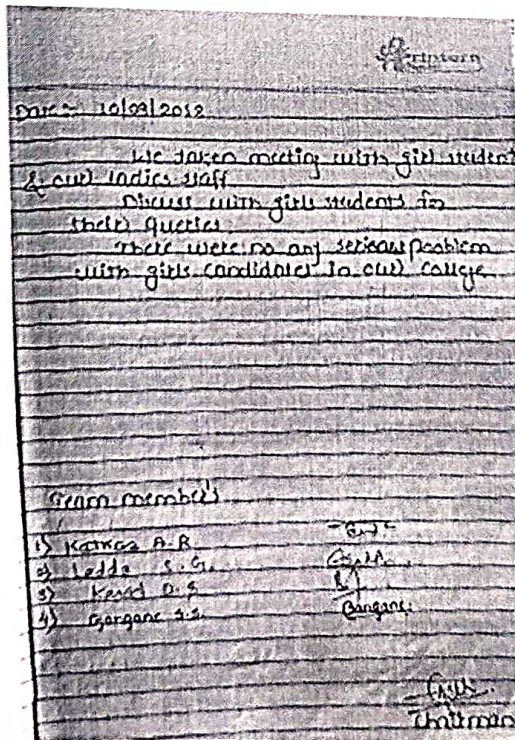 Date:- 10/03/2012
We taken meeting with girl student
& our ladies staff
Discuss with girls students for
their Queries
There were no any serious problem
with girls candidates in our college
Team members
1) A.R.
2) S.G.
3) D.S
4) S.S.
Chairman